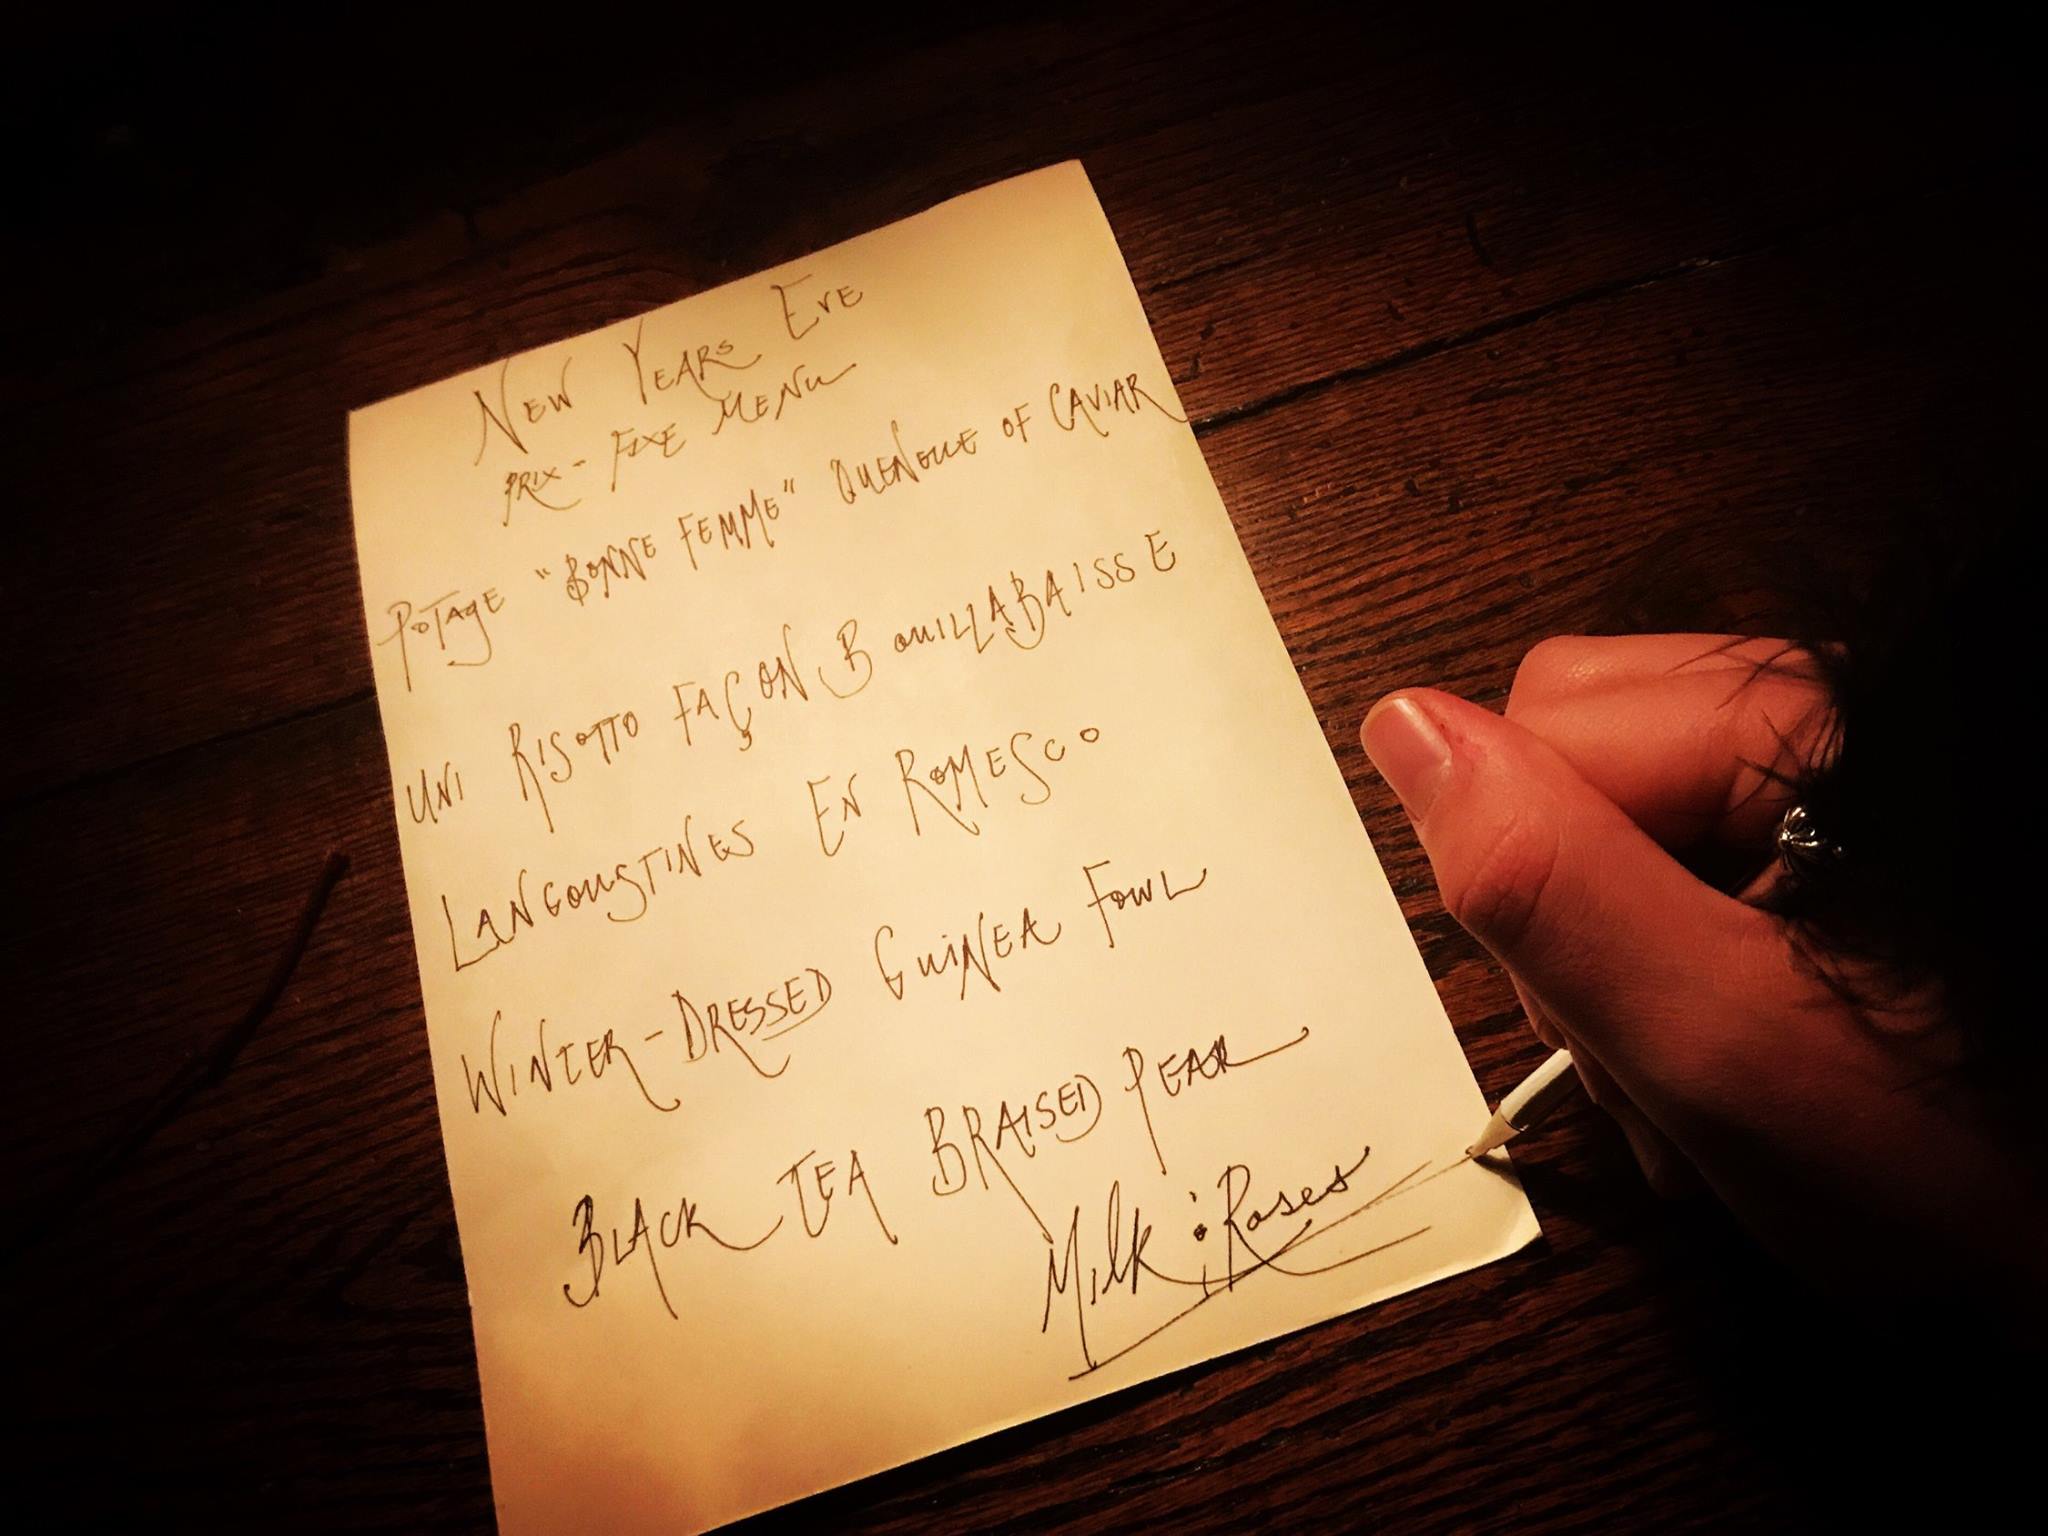 NEW YEARS EVE
PRIX-FIXE MENU
POTAGE "BONNE FEMME" QUENELLE OF CAVIAR
UNI RISOTTO FAÇON BOUILLABAISSE
LANGOUSTINES EN ROMESCO
WINTER-DRESSED GUINEA FOWL
BLACK TEA BRAISED PEAR
Milk & Roses